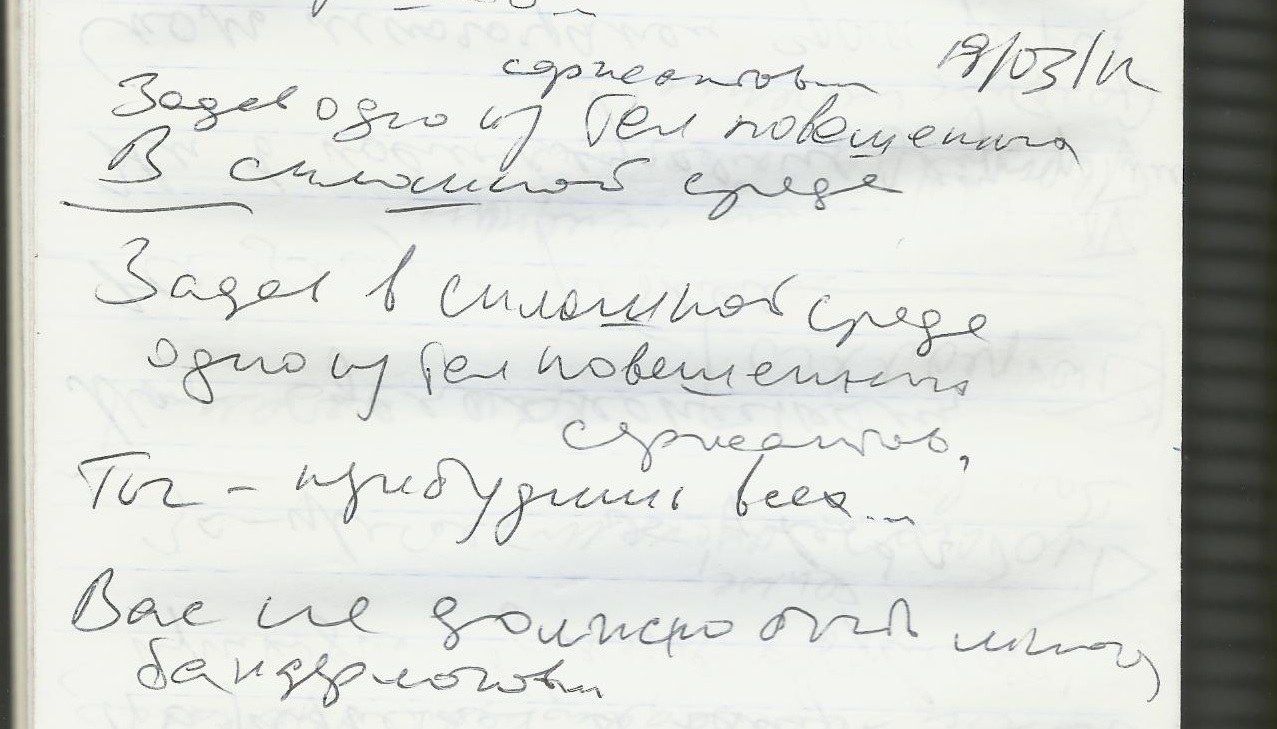 19/03/12
сержантов...
Задев одно из тел повешенных
В сплошной среде
Задев в сплошной среде
одно из тел повешенных
сержантов,
Ты - прибудишь всех...
Вас не должно быть много,
бандерлогов...